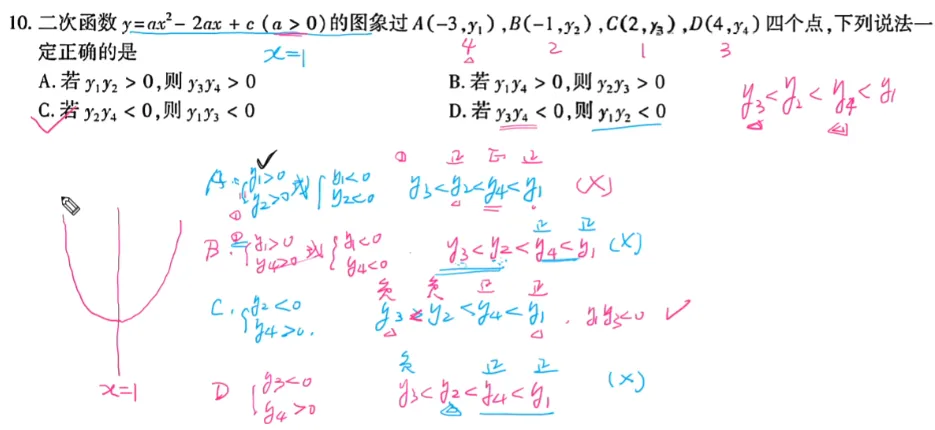 10. 二次函数 y=ax²-2ax+c (a>0)的图象过 A(-3,y₁),B(-1,y₂),C(2,y₃),D(4,y₄)四个点,下列说法一
定正确的是
x=1
4 2 1 3
A. 若 y₁y₂>0,则 y₃y₄>0 B. 若 y₁y₄>0,则 y₂y₃>0
C. 若 y₂y₄<0,则 y₁y₃<0 D. 若 y₃y₄<0,则 y₁y₂<0
y₃<y₂<y₄<y₁
① 正 正 正
A. { y₁>0 y₂>0 或 { y₁<0 y₂<0 y₃<y₂<y₄<y₁ (X)
①
② 正 正
B. { y₁>0 y₄>0 或 { y₁<0 y₄<0 y₃<y₂<y₄<y₁ (X)
负 负 正 正
C. { y₂<0 y₄>0. y₃<y₂<y₄<y₁. y₁y₃<0
负 正 正
D { y₃<0 y₄>0 y₃<y₂<y₄<y₁ (X)
x=1